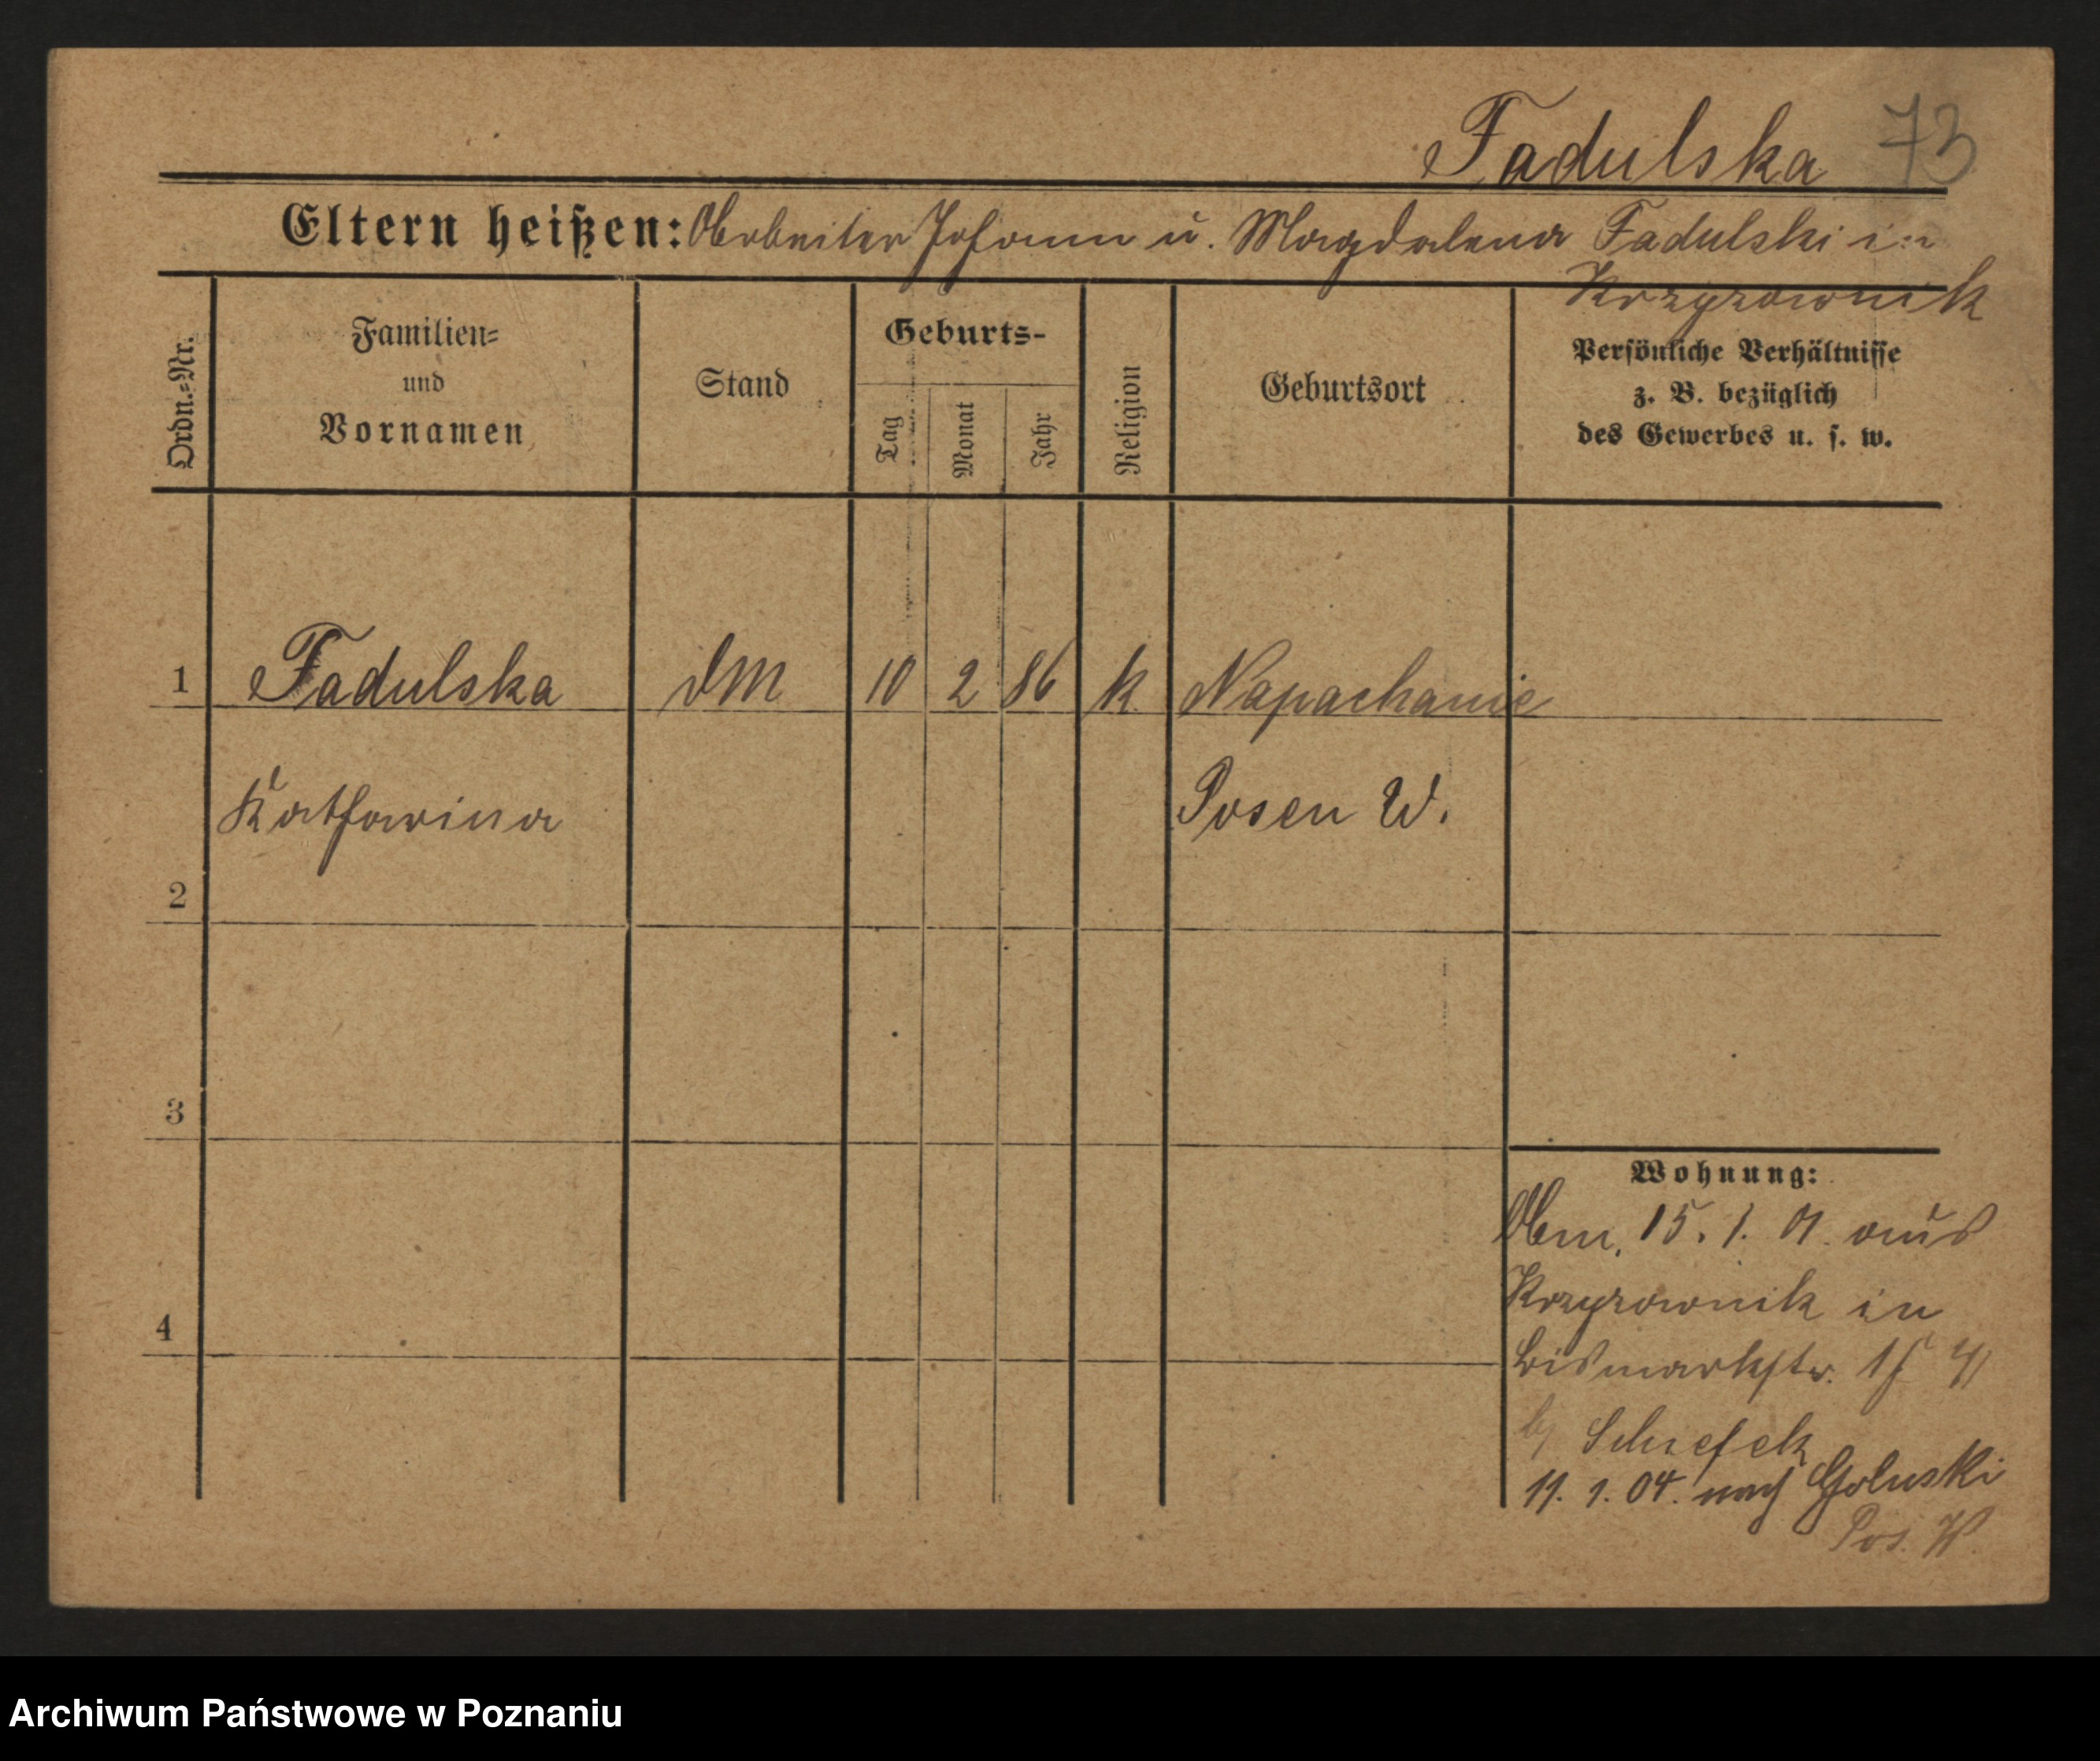 Fadulska 73
Eltern heißen: Arbeiter Johann u. Magdalena Fadulski in
Krzyzownik
Ordn.-Nr.
Familien-
und
Vornamen
Stand
Geburts-
Tag
Monat
Jahr
Religion
Geburtsort
Persönliche Verhältnisse
z. B. bezüglich
des Gewerbes u. s. w.
1 Fadulska DM 10 2 86 k. Napachanie
Katharina Posen W.
2
3
4
Wohnung:
Anm. 15. 1. 01. aus
Krzyzownik in
Bismarkstr.
b/
11. 1. 04. nach Goluski
Pos. W.
Archiwum Państwowe w Poznaniu